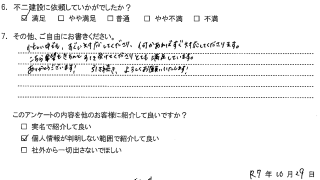 6. 不二建設に依頼していかがでしたか？
☑ 満足 □ やや満足 □ 普通 □ やや不満 □ 不満
7. その他、ご自由にお書きください。
ありがとうございます! 引き続き、よろしくお願いいたします!
このアンケートの内容を他のお客様に紹介して良いですか？
□ 実名で紹介して良い
☑ 個人情報が判明しない範囲で紹介して良い
□ 社外から一切出さないでほしい
R7年10月29日